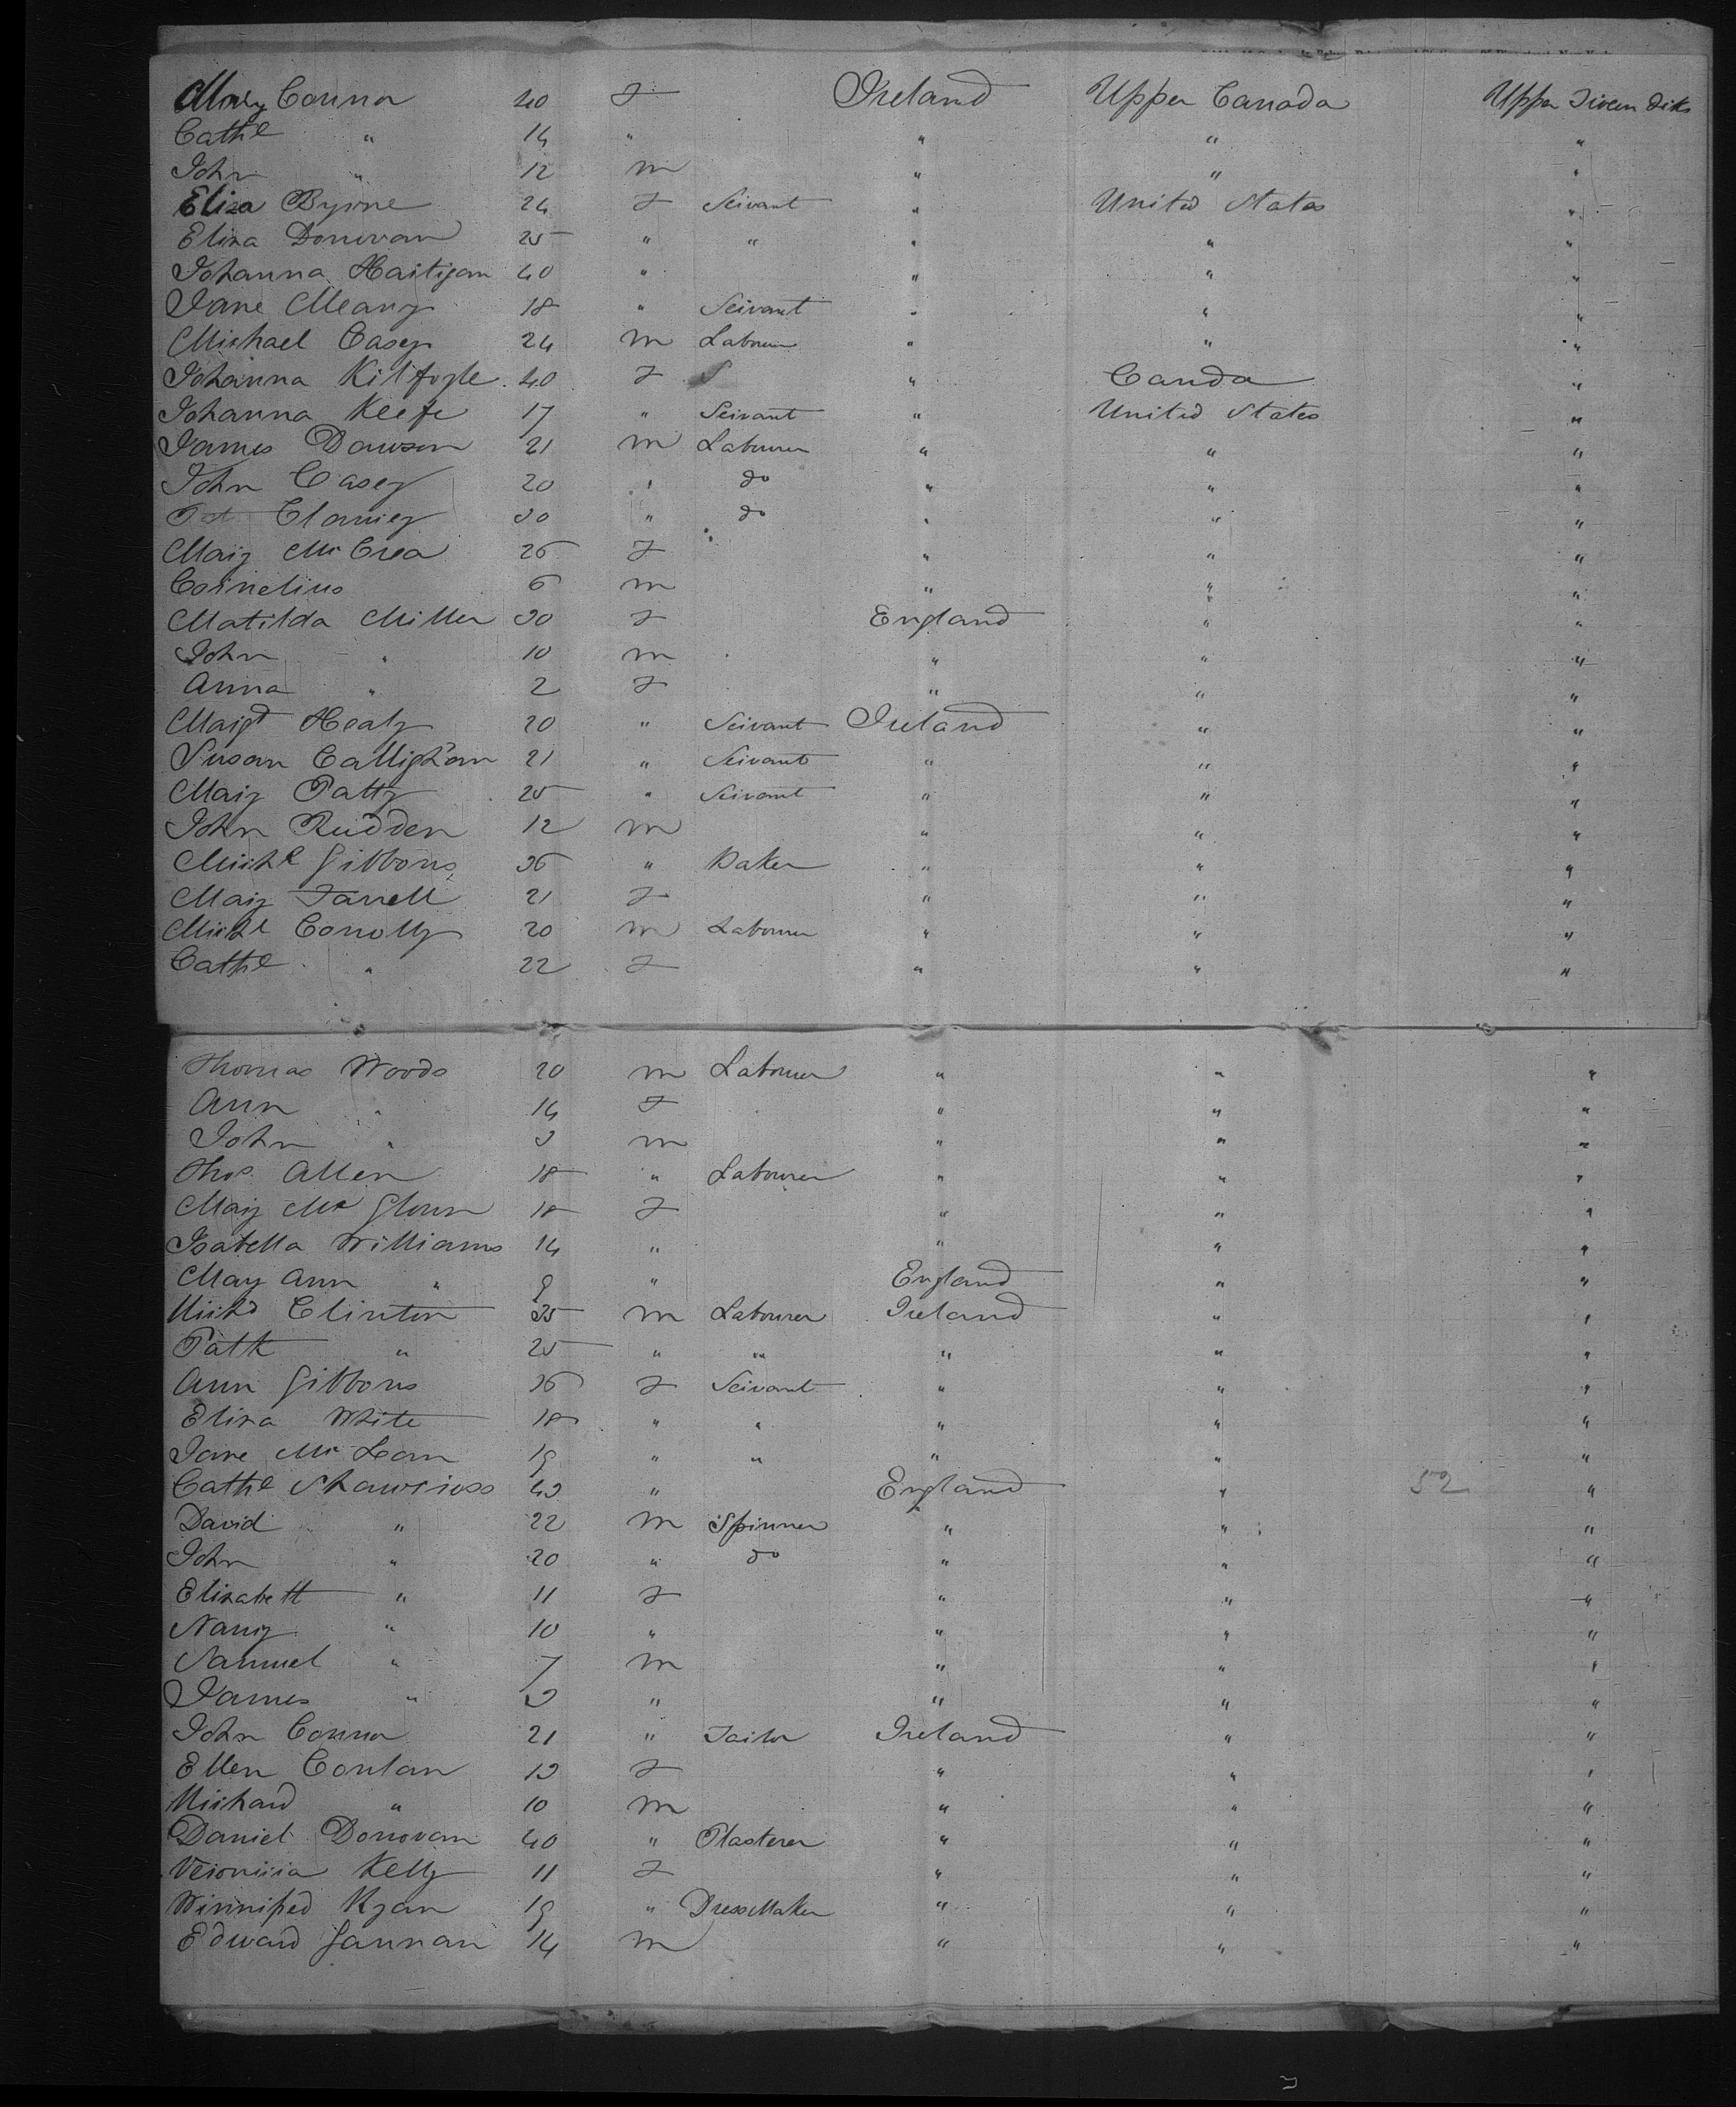 Mary Connor 40 F Ireland Upper Canada Upper Tween Deks
Cathe " 14 " " " "
John " 12 m " " "
Eliza Byrne 24 F Servant " United States "
Eliza Donovan 25 " " " " "
Johanna Hartigan 40 " " " "
Jane Meany 18 " Servant " " "
Michael Casey 24 m Labourer " " "
Johanna Kilfoyle 40 F S " Canda "
Johanna Keefe 17 " Servant " United States "
James Dawson 21 m Labourer " " "
John Casey 20 " do " " "
Pat Clancey 30 " do " " "
Mary McCrea 26 F " " "
Cornelius 6 m " " "
Matilda Miller 30 F England " "
John " 10 m " " "
Anna " 2 F " " "
Margt Healy 20 " Servant Ireland " "
Susan Calligham 21 " Servant " " "
Mary Patty 25 " Servant " " "
John Rudden 12 m " " "
Michl Gibbons 36 " Baker " " "
Mary Farrell 21 F " " "
Michl Conolly 20 m Labourer " " "
Cathe " 22 F " " "
Thomas Woods 20 m Labourer " " "
Ann " 14 F " " "
John " 3 m " " "
Thos Allen 18 " Labourer " " "
Mary Mc Glown 18 F " " "
Isabella Williams 14 " " " "
Mary Ann " 9 " England " "
Richd Clinton 35 m Labourer Ireland " "
Patk " 25 " " " " "
Ann Gibbons 36 F Servant " " "
Eliza White 18 " " " " "
Jane Mc Lean 19 " " " " "
Cathe Shawcross 43 " England " 52 "
David " 22 m Spinner " " "
John " 20 " do " " "
Elizabeth " 11 F " " "
Nancy " 10 " " " "
Samuel " 7 m " " "
James " 3 " " " "
John Connor 21 " Tailor Ireland " "
Ellen Conlan 13 F " " "
Richard " 10 m " " "
Daniel Donovan 40 " Plasterer " " "
Veronicia Kelly 11 F " " "
Winnifred Ryan 19 " DressMaker " " "
Edward Gannan 14 m " " "